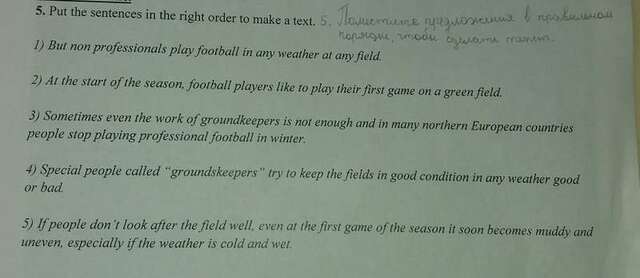 5. Put the sentences in the right order to make a text. 5. Поместите предложения в правильном
порядке, чтобы сделать текст.
1) But non professionals play football in any weather at any field.
2) At the start of the season, football players like to play their first game on a green field.
3) Sometimes even the work of groundkeepers is not enough and in many northern European countries
people stop playing professional football in winter.
4) Special people called "groundskeepers" try to keep the fields in good condition in any weather good
or bad.
5) If people don't look after the field well, even at the first game of the season it soon becomes muddy and
uneven, especially if the weather is cold and wet.